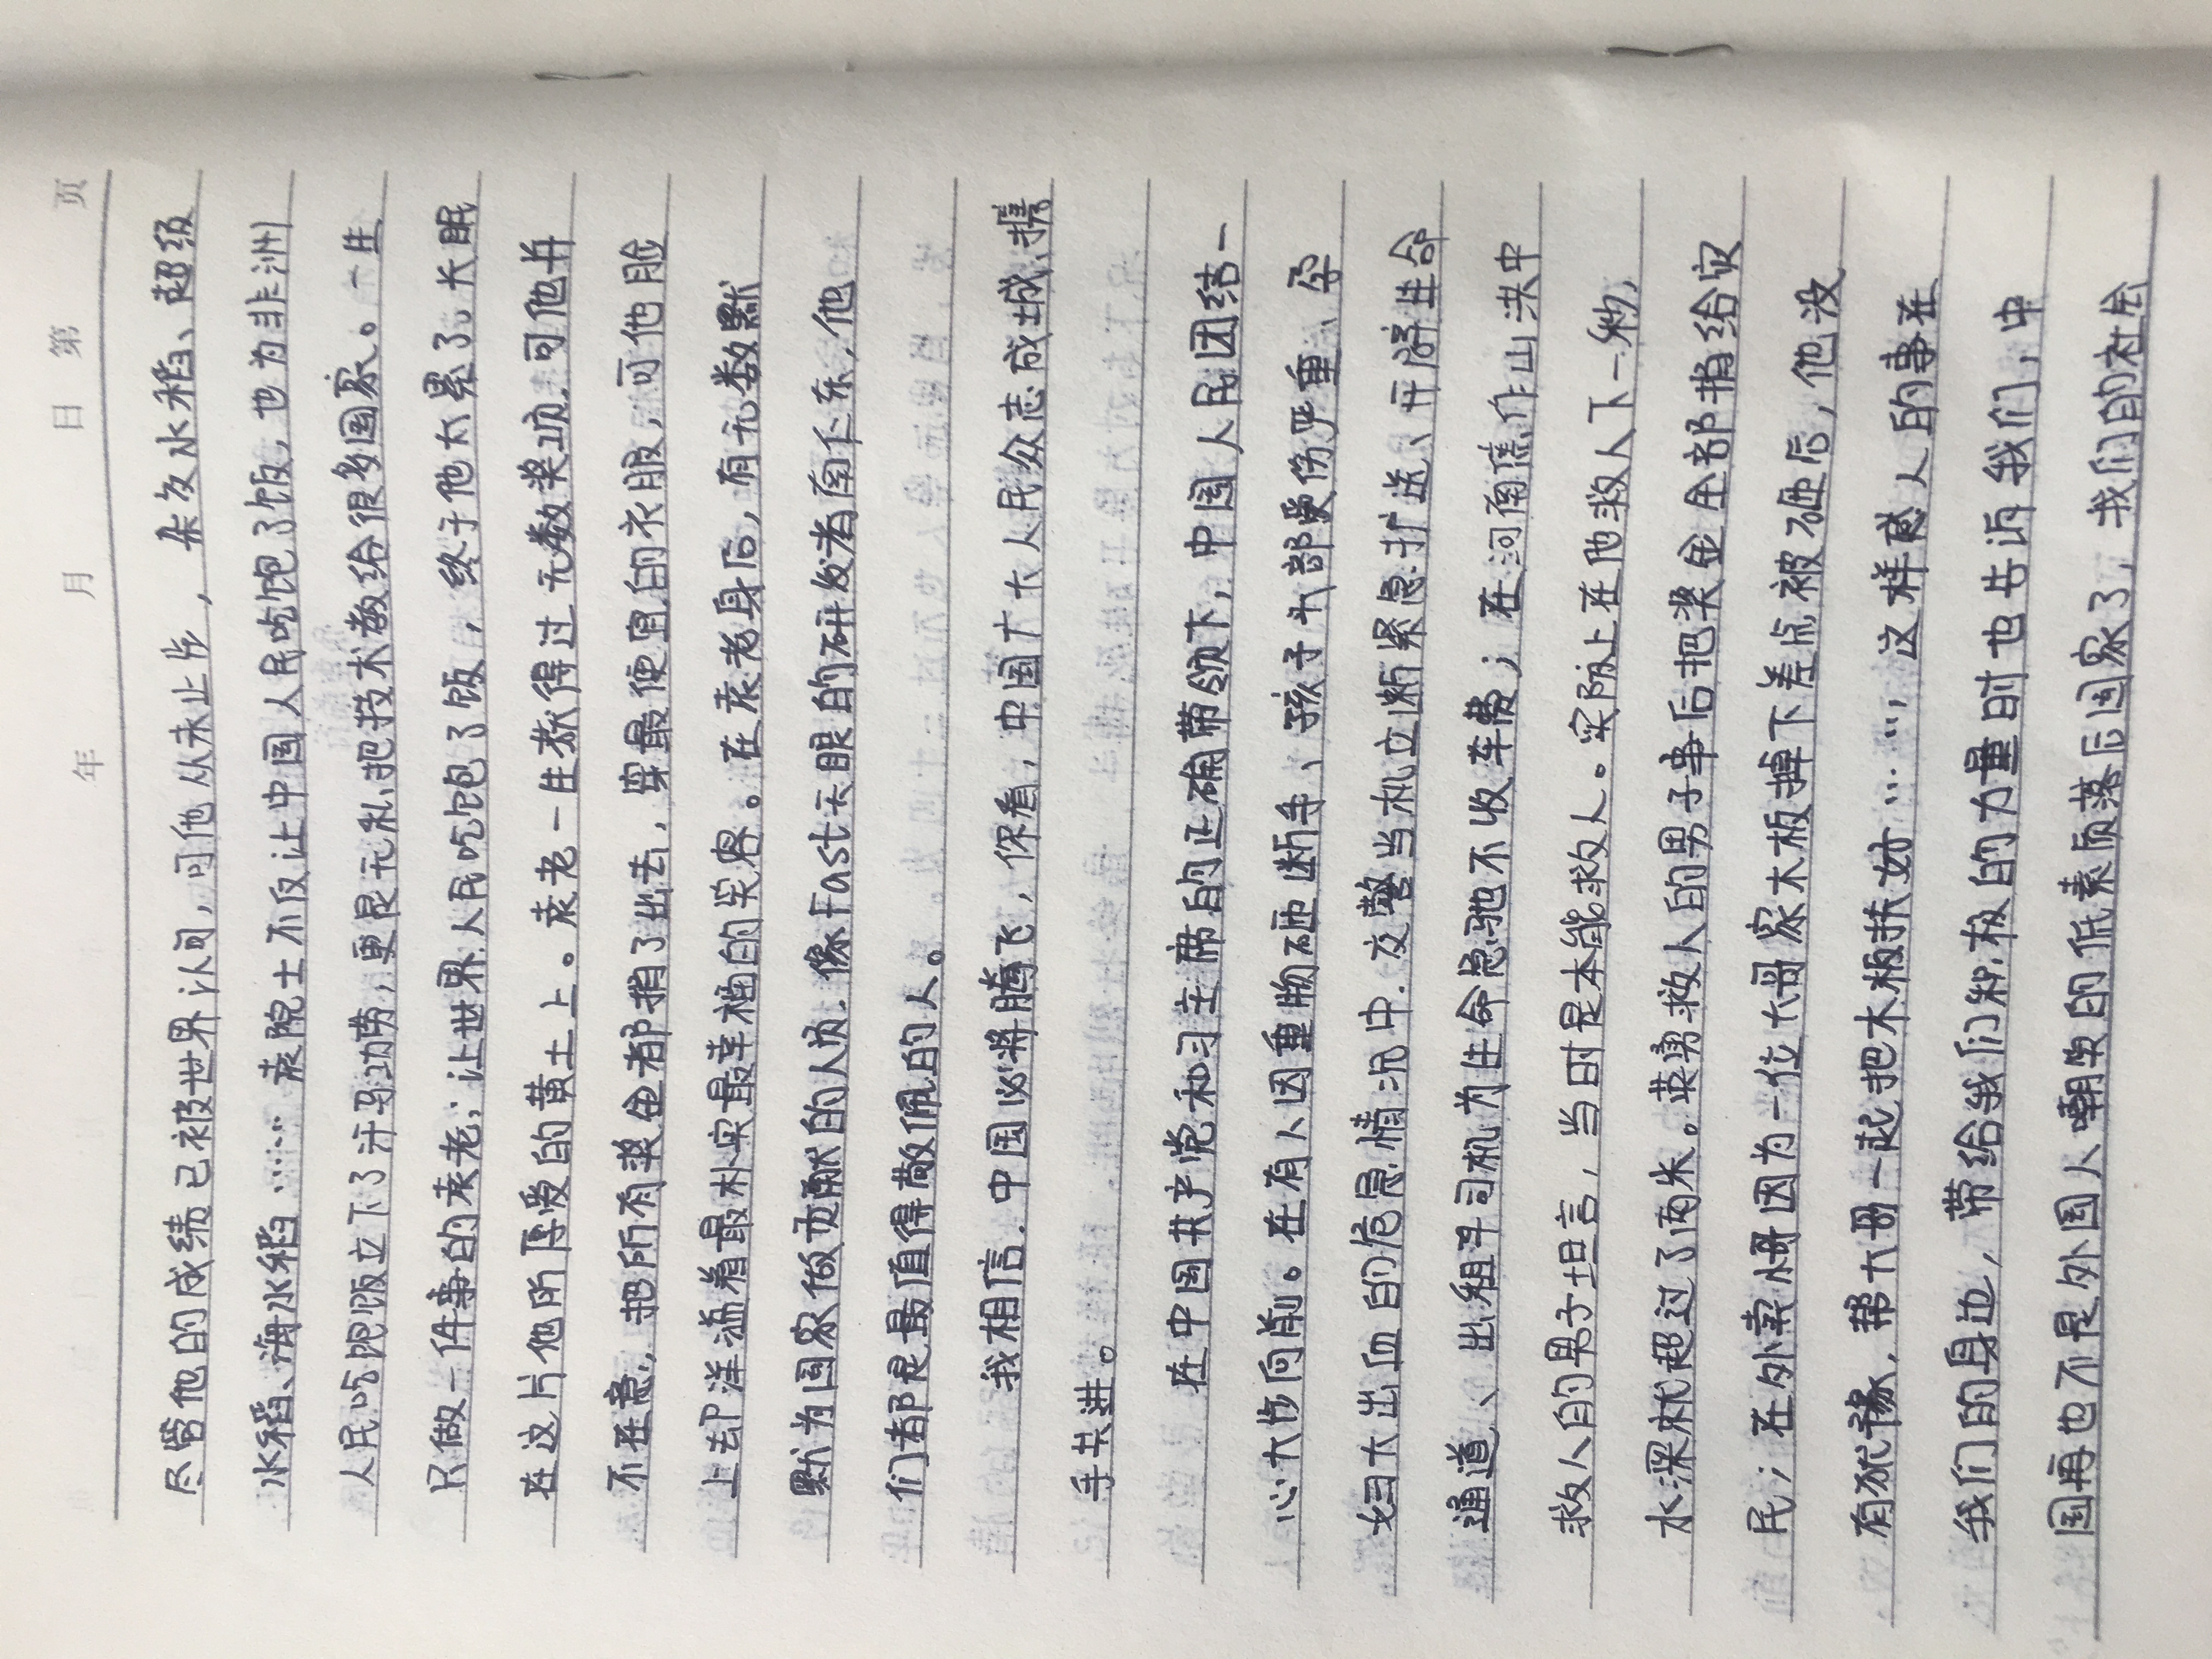 年 月 日 第 页
尽管他的成绩已被世界认可,可他从未止步,杂交水稻、超级
水稻、海水稻……袁院士不仅让中国人民吃饱了饭,也为非洲
人民吃饱饭立下了汗马功劳,更是无私把技术教给很多国家。一生
只做一件事的袁老;让世界人民吃饱了饭,终于他太累了。长眠
在这片他所厚爱的黄土上。袁老一生获得过无数奖项.可他并
不在意,把所有奖金都捐了出去,穿最便宜的衣服,可他脸
上却洋溢着最朴实最幸福的笑容。在袁老身后,有无数默
默为国家做贡献的人员.像Fast天眼的研发者南仁东,他
们都是最值得敬佩的人。
我相信.中国必将腾飞,你看,中国广大人民众志成城、携
手共进。
在中国共产党和习主席的正确带领下,中国人民团结一
心大步向前。在有人因重物砸断手、孩子头部受伤严重、孕
妇大出血的危急情况中.交警当机立断紧急护送、开辟生命
通道、出租车司机为生命急驰不收车费;在河南焦作山洪中
救人的男子坦言,当时是本能救人。实际上在他救人下一秒,
水深就超过了两米。英勇救人的男子事后把奖金全部捐给灾
民;在外卖小哥因为一位大哥家木板掉下差点被砸后,他没
有犹豫,帮大哥一起把木板扶好……,这样感人的事在
我们的身边,带给我们积极的力量时也告诉我们,中
国再也不是外国人嘲笑的低素质落后国家了,我们的社会